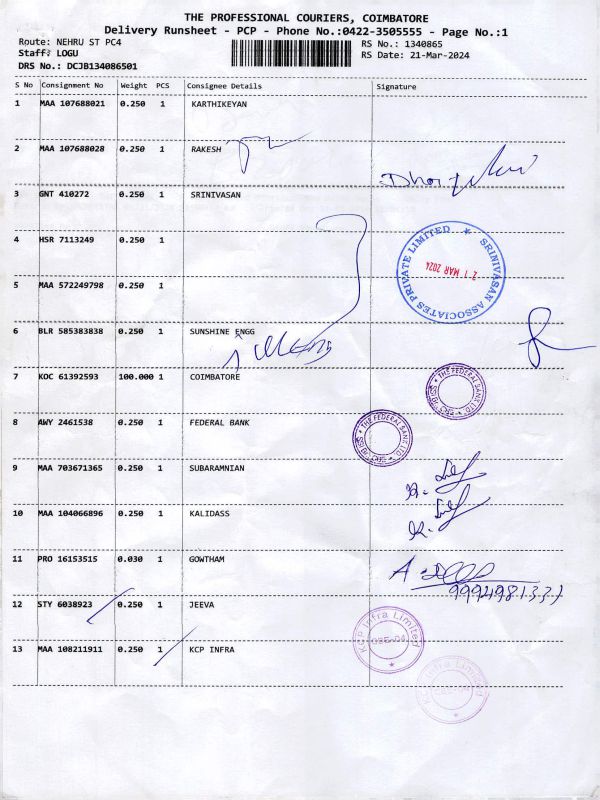 THE PROFESSIONAL COURIERS, COIMBATORE
Delivery Runsheet - PCP - Phone No.:0422-3505555 - Page No.:1
Route: NEHRU ST PC4
RS No.: 1340865
Staff: LOGU
RS Date: 21-Mar-2024
DRS No.: DCJB134086501
S No Consignment No Weight PCS Consignee Details Signature
1 MAA 107688021 0.250 1 KARTHIKEYAN
2 MAA 107688028 0.250 1 RAKESH
3 GNT 410272 0.250 1 SRINIVASAN
4 HSR 7113249 0.250 1
SRINIVASAN ASSOCIATES PRIVATE LIMITED
21 MAR 2024
5 MAA 572249798 0.250 1
6 BLR 585383838 0.250 1 SUNSHINE ENGG
7 KOC 61392593 100.000 1 COIMBATORE
THE FEDERAL BANK LTD
8 AWY 2461538 0.250 1 FEDERAL BANK
THE FEDERAL BANK LTD
9 MAA 703671365 0.250 1 SUBARAMNIAN
10 MAA 104066896 0.250 1 KALIDASS
11 PRO 16153515 0.030 1 GOWTHAM
12 STY 6038923 0.250 1 JEEVA
KCP Infra Limited
13 MAA 108211911 0.250 1 KCP INFRA
KCP Infra Limited